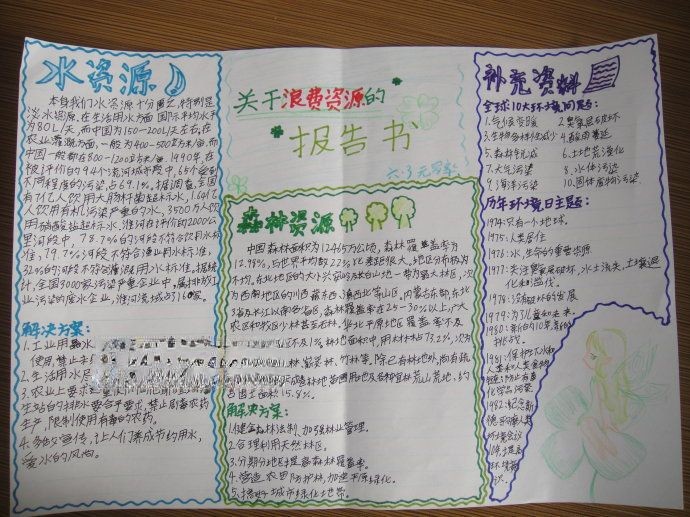 水资源
本身我们水资源十分匮乏,特别是
淡水资源。在生活用水方面,国际平均水平
为80L/天,而中国为150-200L/天左右;在
农业灌溉方面,一般为400-500立方米/亩,而
中国一般都在800-1200立方米/亩。1990年,在
被评价的94个流河城市段中,65个受到
不同程度的污染,占69.1%。据调查,全国
人饮用有机污染严重的水,3500万人饮
用硝酸盐超标水,淮河在评价的2000公
里河段中,78.7%的河段不符合饮用水标
准,79.7%河段不符合渔业用水标准,
32%的河段不符合灌溉用水标准。据统
计,全国3000家污染严重企业中,属排放工
业污染的废水企业,淮河流域占160家
解决方案:
1.工业用水
使用,禁止
2.生活用水
3.农业上要求
生站的排水要合乎要求,禁止剧毒农药
生产,限制使用有毒的农药。
4.多多宣传,让人们养成节约用水,
爱水的风尚。
关于浪费资源的
报告书
六·3
森林资源
中国森林面积为12465万公顷,森林覆盖率为
12.98%,与世界平均数22%比差距很大。地区分布极为
不均。东北地区的大小兴安岭及长白山地一带为最大林区,次
为西南地区的川西藏东西、滇西北等山区。内蒙古东部、东北
3省及长江以南各省区,森林覆盖率在25-30%以上,广大
农区和牧区少林甚至无林。华北平原地区覆盖率不及
区不及1%。林地面积中,用材林地占73.2%,次为
林、薪炭林、竹林等。除已有林地外,尚有疏
成造林地苗圃用地及各种宜林荒山荒地,约
占国土面积15.8%。
解决方案:
1.健全森林法制、加强林业管理。
2.合理利用天然林区。
3.分期分地区提高森林覆盖率。
4.营造农田防护林,加速平原绿化。
5.搞好城市绿化地带。
补充资料
全球10大环境问题:
1.气候变暖 2.臭氧层破坏
3.生物多样化减少 4.酸雨蔓延
5.森林锐减 6.土地荒漠化
7.大气污染 8.水体污染
9.海洋污染 10.固体废物污染.
历年环境日主题:
1974:只有一个地球.
1975:人类居住
1976:水,生命的重要源
1977:关注臭氧层破坏,水土流失,土壤退
化和滥伐.
1978:没有破坏的发展
1979:为了儿童和未来.
1980:新的10年,新的
挑战
1981:保护地下水和
人类食物
链;防止有毒
化学品污染
1982:纪念斯
德哥尔摩人类
环境会议
10周年,提高
环境意
识.